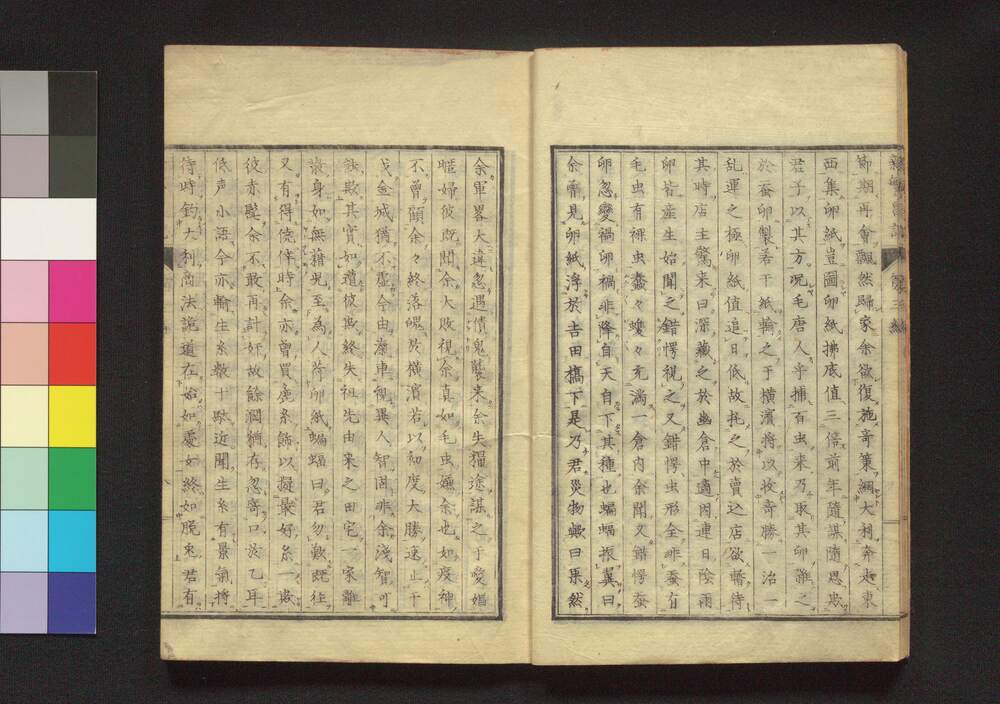 節期再會飄然歸家余欲復施奇策網大利奔走東
西集卵紙豈圖卵紙拂底值三倍前年隨謀隨思
君子以其方况毛唐人乎捕百虫来乃取其卵雜之
於蚕卵製若干紙輸之于橫濱將以收奇勝一治一
乱運之極卵紙值追日低故托之於賣込店欲暫待
其時店主驚来曰深藏之於幽倉中適因連日陰雨
卵皆産生始聞之錯愕視之又錯愕虫形全非蚕有
毛虫有裸虫蠢々蠕々充滿一倉内余聞又錯愕蚕
卵忽變禍卵禍非降自天自下其種也蝙蝠振翼曰
余嘗見卵紙浮於吉田橋下是乃君災物歟曰果然
余軍畧大違忽遇債鬼襲来余失糧途謀之于愛娼
曖婦彼既聞余大敗視余真如毛虫嫌余也如疫神
不曾顧余々終落魄及横濱若以初度大勝速止干
戈金城猶不虚今由漆車視異人智固非余淺智可
欺敗其實如遺彼欺終失祖先由来之田宅一家離
散身如無籍鬼至為人荷卵紙蝙蝠曰君勿歎既往
又有得僥倖時余亦曾買麁糸飾以擬最好糸一
彼赤髭余不敢再計奸故餘潤猶存忽寄口於乙耳
低声小語今亦輸生糸数十駄近聞生糸有景氣將
待時釣大利商法詭道在始如處女終如脱兎君有